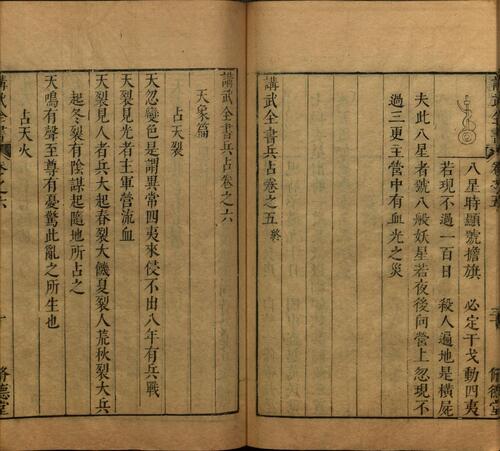 講武全書 卷之五 脩德堂
八星時顯號擔旗 必定干戈動四夷
若現不過一百日 殺人遍地是橫屍
夫此八星者號八般妖星若夜後向營上忽現不
過三更主營中有血光之災
講武全書兵占卷之五終
講武全書兵占卷之六
天象篇
占天裂
天忽變色是謂異常四夷來侵不出八年有兵戰
天裂見光者主軍營流血
天裂見人者兵大起春裂大饑夏裂人荒秋裂大兵
起冬裂有陰謀起隨地所占之
天鳴有聲至尊有憂驚此亂之所生也
占天火
講武全書 卷之六 脩德堂